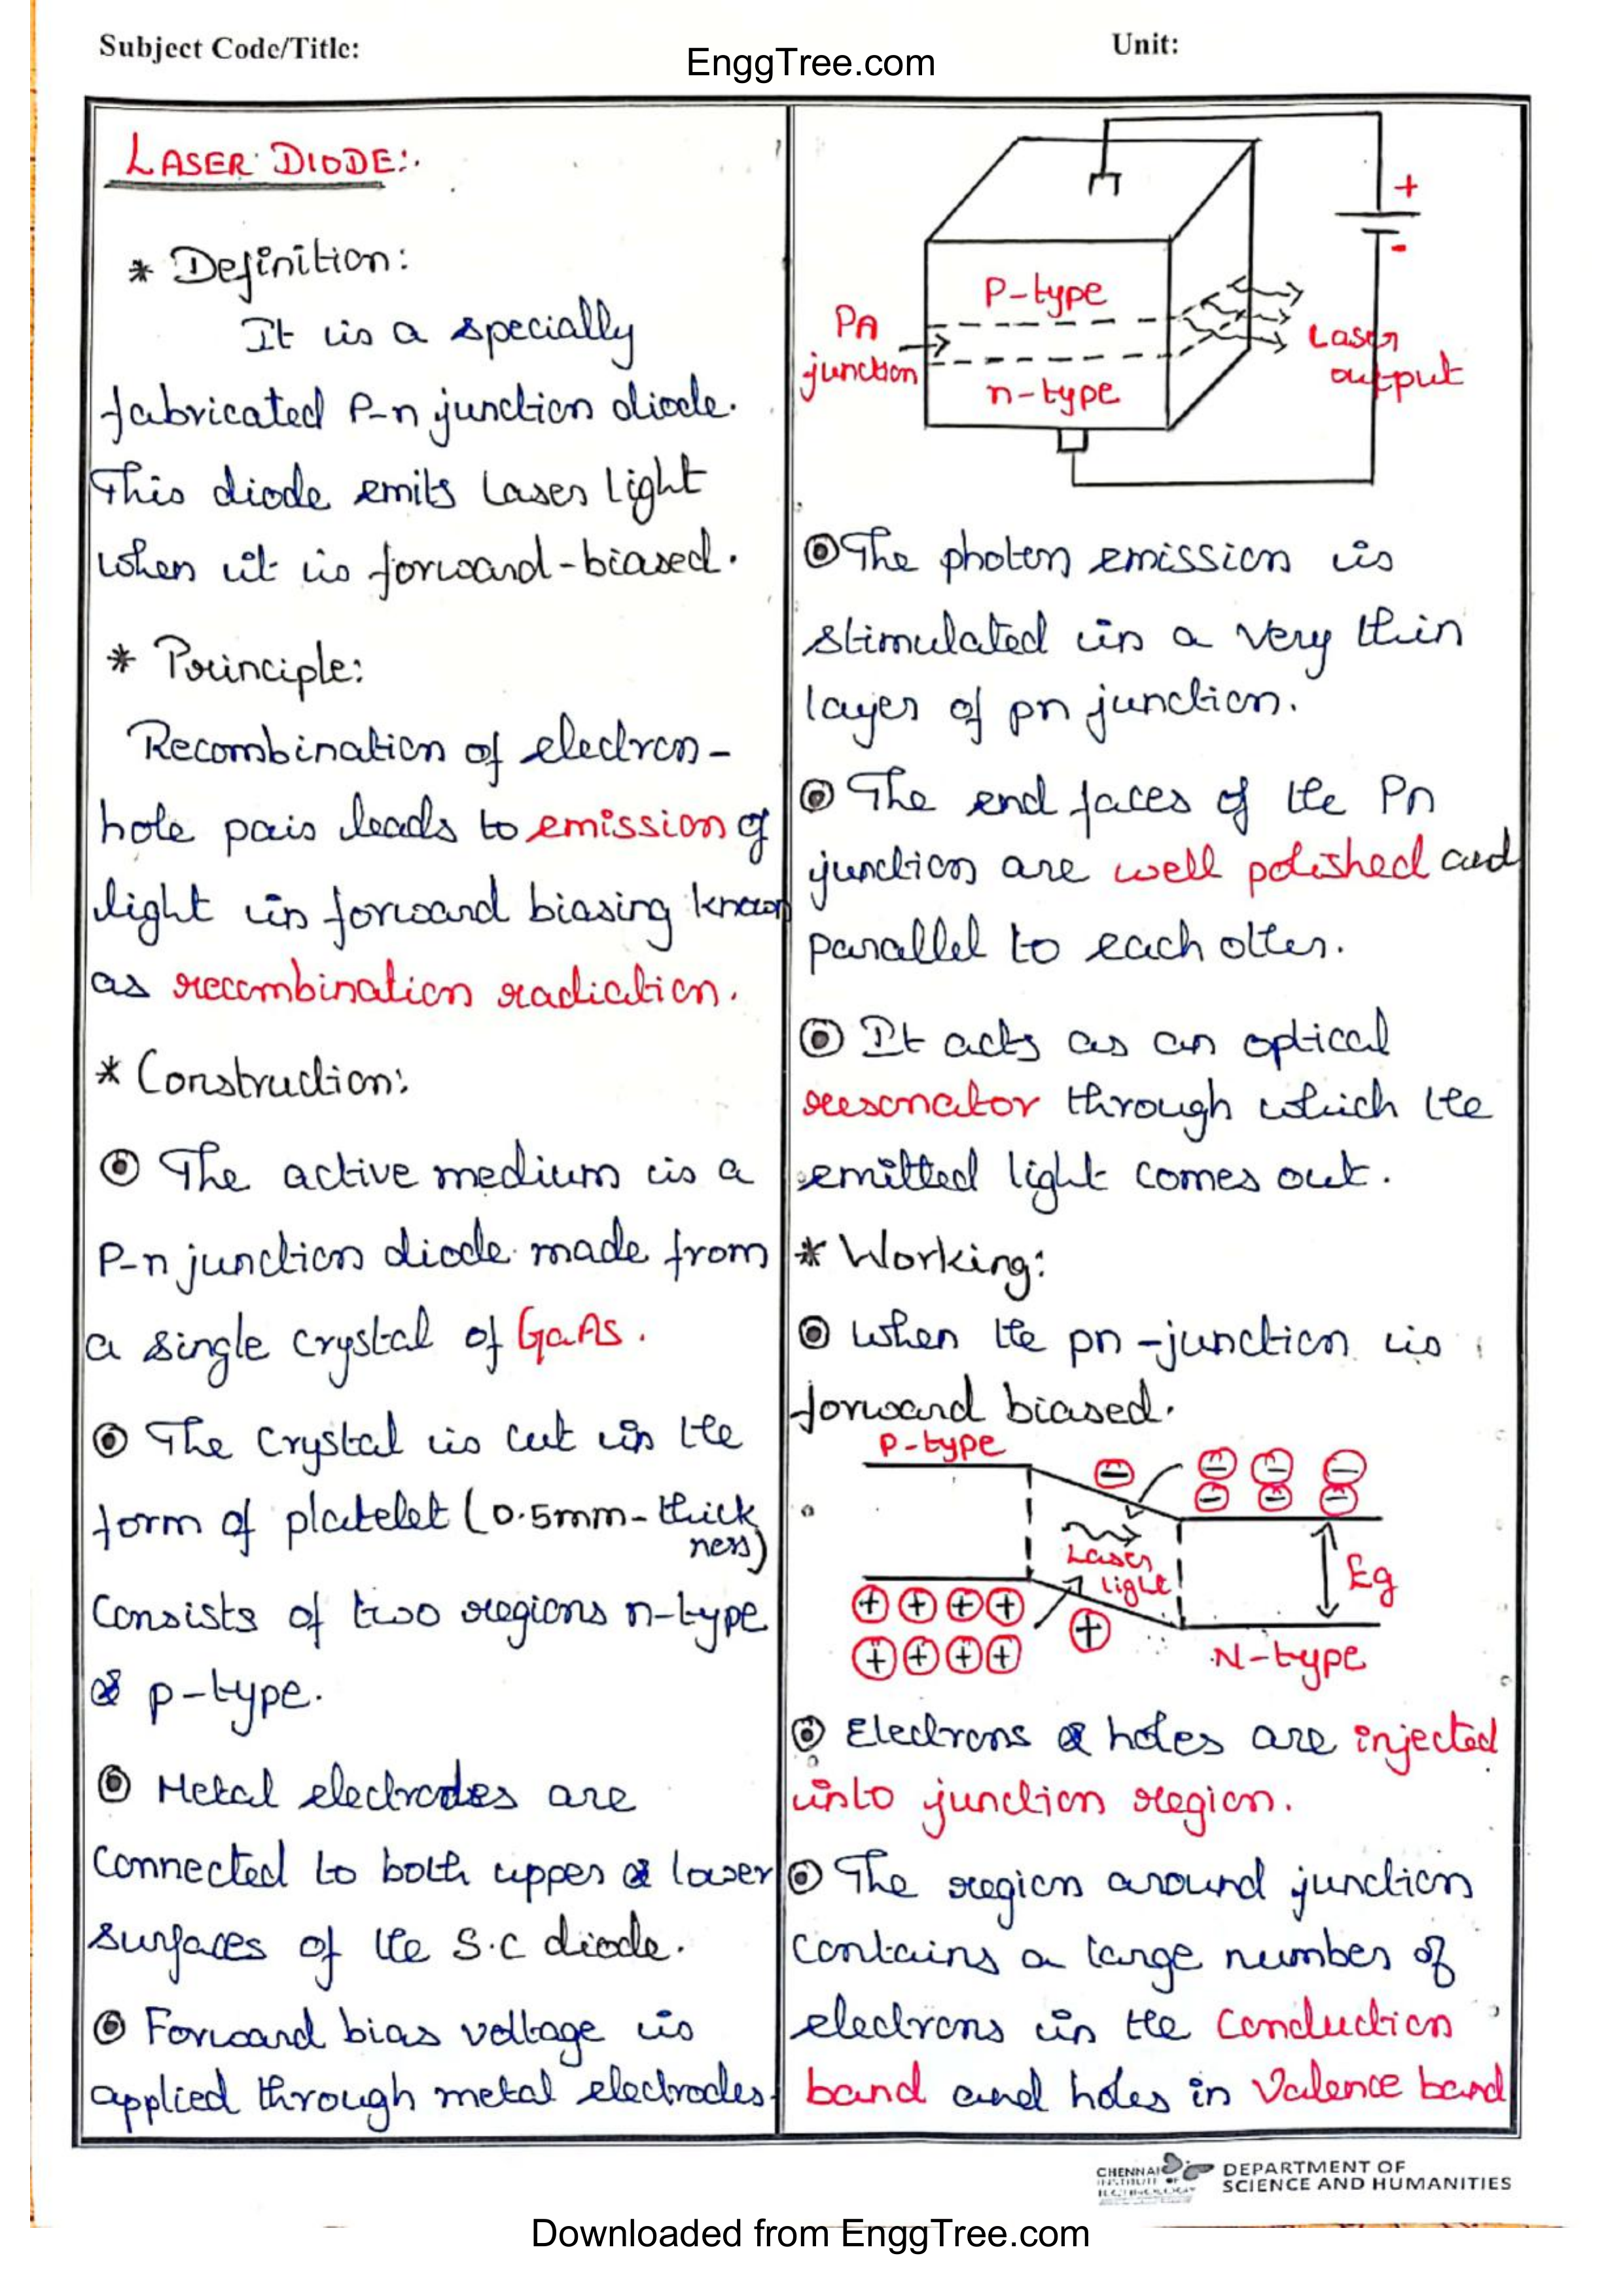 Subject Code/Title:
EnggTree.com
Unit:
LASER DIODE:
* Definition:
It is a specially
fabricated P-n junction diode.
This diode emits Laser light
when it is forward-biased.
* Principle:
Recombination of electron-
hole pair leads to emission of
light in forward biasing known
as recombination radiation.
* Construction:
⦿ The active medium is a
P-n junction diode made from
a single crystal of GaAs.
⦿ The crystal is cut in the
form of platelet (0.5mm-thick
ness)
consists of two regions n-type
& p-type.
⦿ Metal electrodes are
connected to both upper & lower
surfaces of the S.C diode.
⦿ Forward bias voltage is
applied through metal electrodes.
+
-
P-type
Pn
junction
n-type
Laser
output
⦿ The photon emission is
stimulated in a very thin
layer of pn junction.
⦿ The end faces of the Pn
junction are well polished and
parallel to each other.
⦿ It acts as an optical
resonator through which the
emitted light comes out.
* Working:
⦿ When the pn-junction is
forward biased.
P-type
Laser
light
Eg
N-type
⦿ Electrons & holes are injected
into junction region.
⦿ The region around junction
contains a large number of
electrons in the conduction
band and holes in Valence band
CHENNAI
INSTITUTE OF
TECHNOLOGY
DEPARTMENT OF
SCIENCE AND HUMANITIES
Downloaded from EnggTree.com